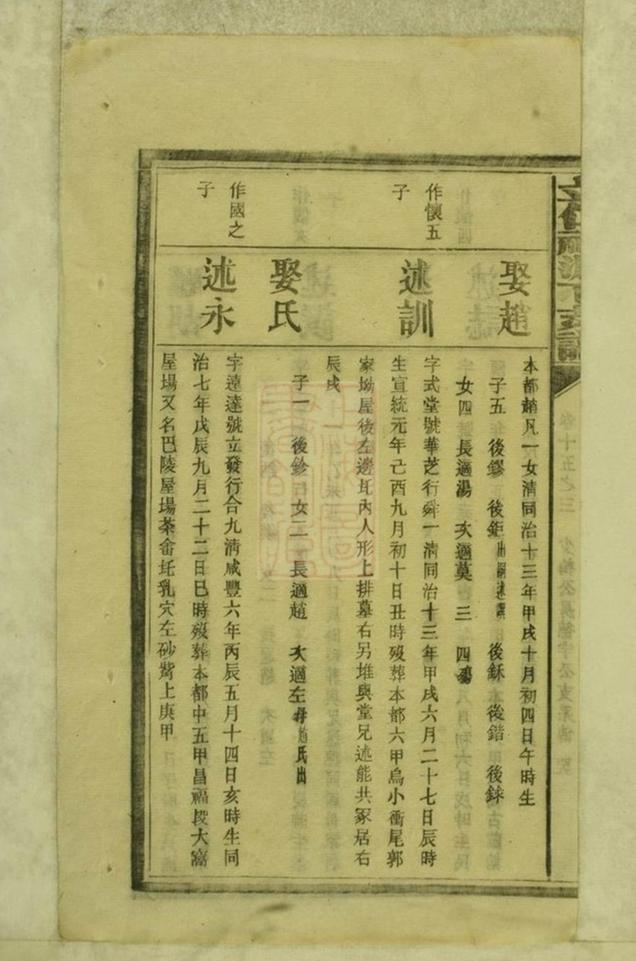 卷十五之三
娶趙
本都趙凡一女清同治十三年甲戌十月初四日午時生
子五 後鏐 後鉅出嗣述 後鉌 後鍇 後銇
女四 長適湯 次適莫 三 四殤
作懷五子
述訓
字式堂號華芝行舜一清同治十三年甲戌六月二十七日辰時
生宣統元年己酉九月初十日丑時歿葬本都六甲烏小衝尾郭
家坳屋後左邊瓦內人形上排墓右另堆與堂兄述能共冢居右
辰戌
娶氏
子一 後鉁 女二 長適趙 次適左 氏出
作國之子
述永
字遠逵號立發行合九清咸豐六年丙辰五月十四日亥時生同
治七年戊辰九月二十二日巳時歿葬本都中五甲昌福段大窩
屋場又名巴陵屋場茶畬坵乳穴左砂背上庚甲